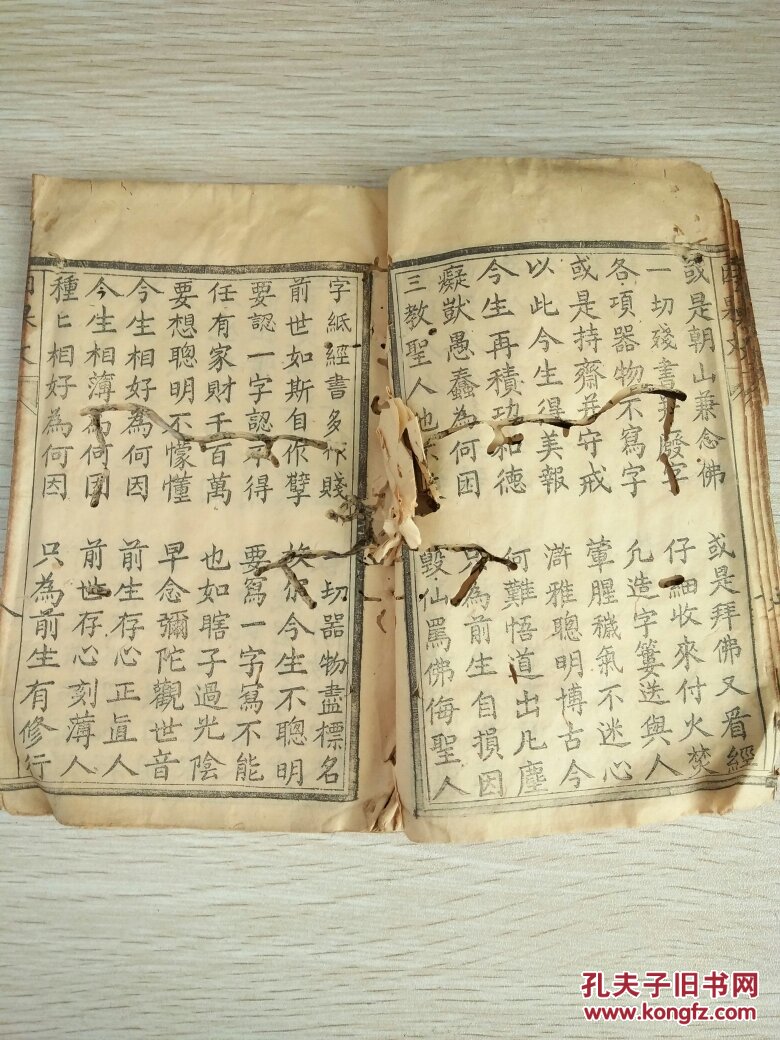 因果文
或是朝山兼念佛 或是拜佛又看經
一切殘書 廢字 仔細收來付火焚
各項器物不寫字 允造字簍送與人
或是持齋并守戒 葷腥穢氣不迷心
以此今生得美報 澥雅聰明博古今
今生再積功和德 何難悟道出凡塵
癡獃愚蠢為何因 只為前生自損因
三教聖人也 毀仙罵佛侮聖人
字紙經書多作賤 切器物盡標名
前世如斯自作孽 今生不聰明
要認一字認不得 要寫一字寫不能
任有家財千百萬 也如瞎子過光陰
要想聰明不懞懂 早念彌陀觀世音
今生相好為何因 前生存心正眞人
今生相薄為何因 前世存心刻薄人
種匕相好為何因 只為前生有修行
孔夫子旧书网
www.kongfz.com